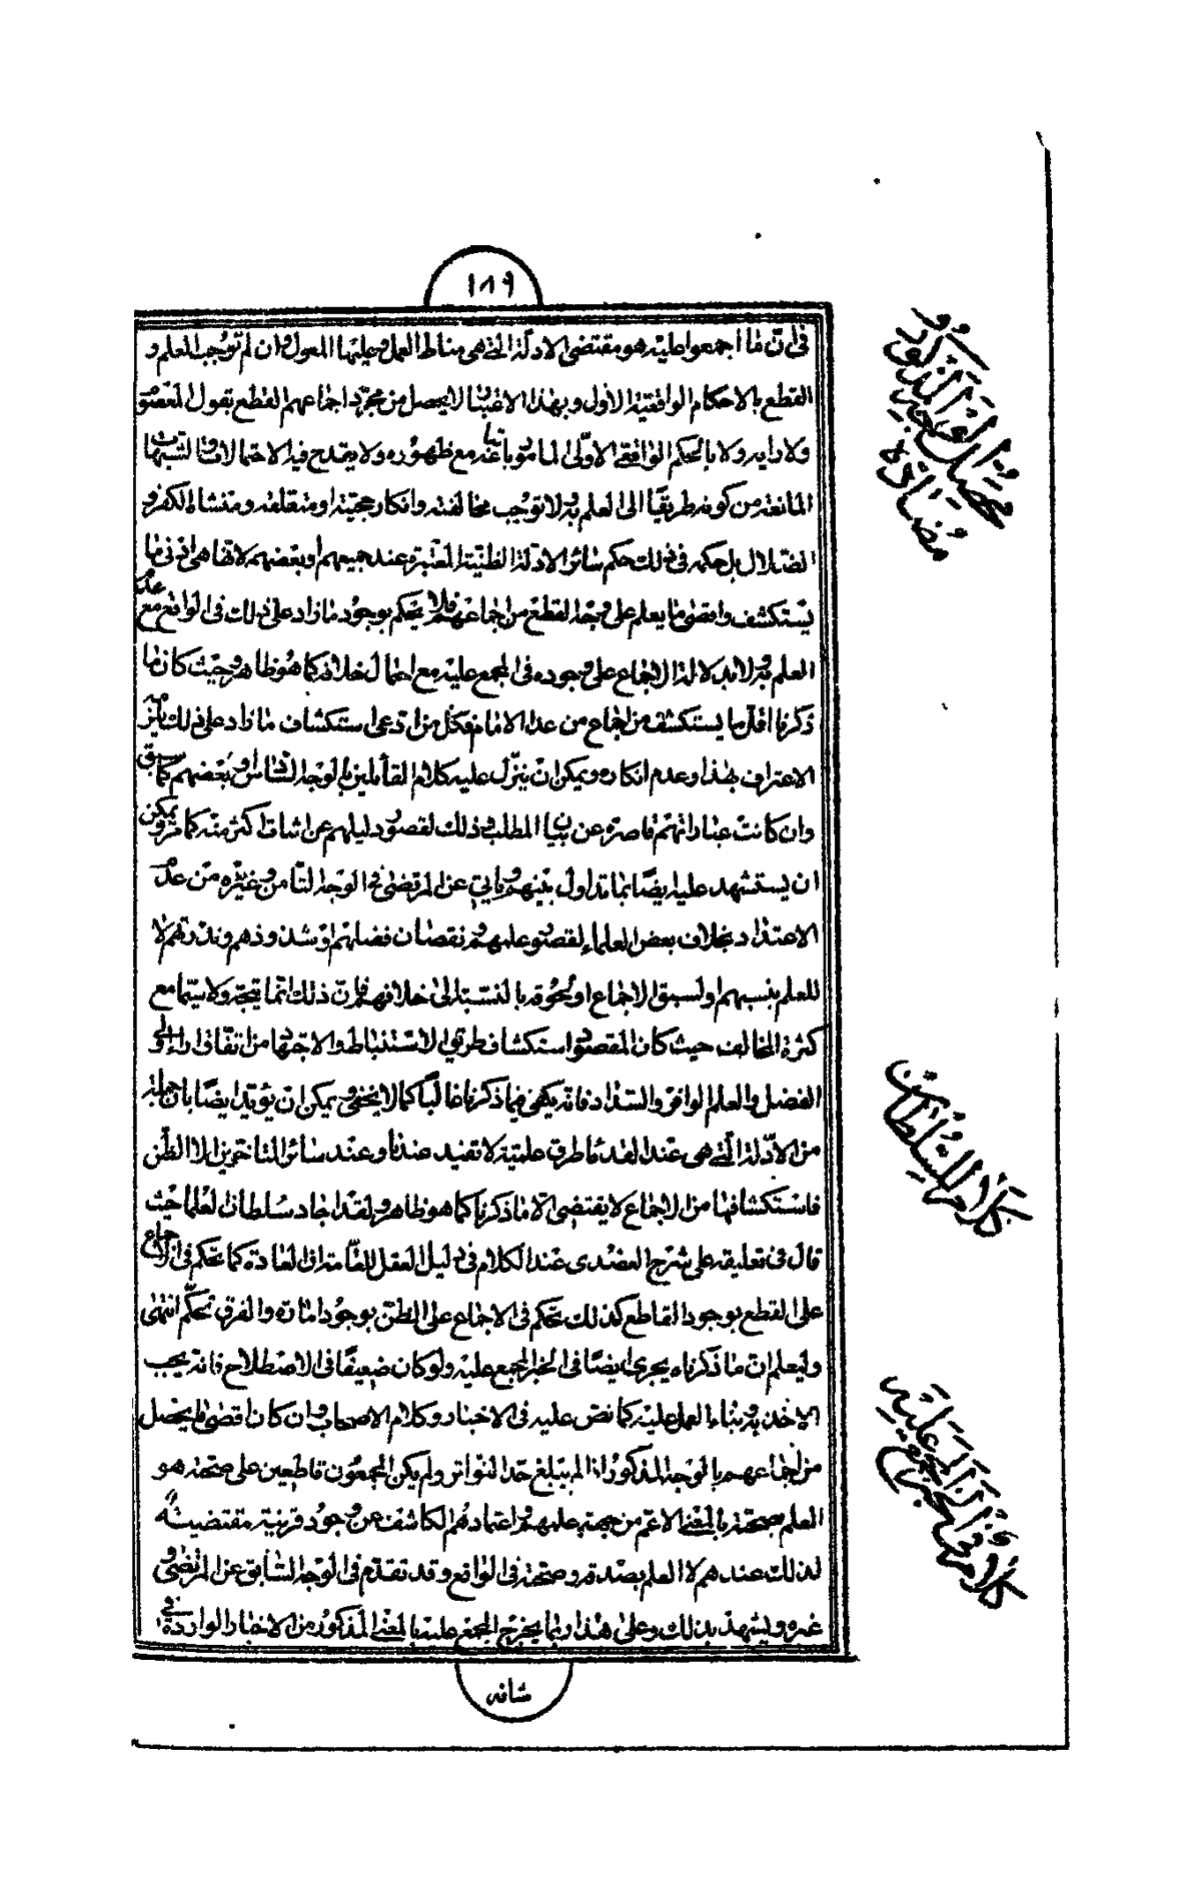 ١٨٩
في ان ما اجمعوا عليه هو مقتضى الادلة التي هي مناط العمل وعليها المعول وان لم توجب العلم و
القطع بالاحكام الواقعية الاول وبهذا الاعتبار لا يحصل من مجرد اجماعهم القطع بقول المعصوم
ولا رايه ولا بالحكم الواقعي الاولى المامور باتباعه مع ظهوره ولا يقدح فيه الاحتمالات والشبهات
المانعة من كونه طريقا الى العلم به ولا توجب مخالفته وانكار حجيته او متعلقه ومنشاه الكفر و
الضلال بل حكمه في ذلك حكم سائر الادلة الظنية المعتبرة عند جميعهم او بعضهم لانها هي ادنى ما
يستكشف واقصى ما يعلم على وجه القطع من اجماعهم فلا يحكم بوجود ما زاد على ذلك في الواقع مع عدم
العلم به ولا بدلالة الاجماع على وجوده في المجمع عليه مع احتمال خلافه كما هو ظاهر وحيث كان ما
ذكرنا اقل ما يستكشف من اجماع من عدا الامام فكل من ادعى استكشاف ما زاد على ذلك يلزمه
الاعتراف بهذا وعدم انكاره ويمكن ان ينزل عليه كلام القائلين بالوجه السادس او بعضهم كما سبق
وان كانت عباراتهم قاصرة عن بيان المطلب في ذلك لقصور دليلهم عن اثبات اكثر منه كما مر ويمكن
ان يستشهد عليه ايضا بما تداول بينهم وياتي عن المرتضى في الوجه الثامن وغيره من عدم
الاعتداد بخلاف بعض العلماء لقصور علمهم ونقصان فضلهم او شذوذهم وندرتهم لا
للعلم بنسبهم او لسبق الاجماع او لحوقه بالنسبة الى خلافهم فان ذلك انما يتجه ولا سيما مع
كثرة المخالف حيث كان المقصود استكشاف طريق الاستنباط والاجتهاد من اتفاق اراء اولى
الفضل والعلم الوافر والسداد فانه يكفي فيما ذكرنا غالبا كما لا يخفى ويمكن ان يؤيد ايضا بان جملة
من الادلة التي هي عند القدماء طرق علمية لا تفيد عندنا وعند سائر المتاخرين الا الظن
فاستكشافها من الاجماع لا يقتضي الا ما ذكرنا كما هو ظاهر ولقد اجاد سلطان العلماء حيث
قال في تعليقه على شرح العضدى عند الكلام في دليل العقل للعامة ان العادة كما تحكم في الاجماع
على القطع بوجود القاطع كذلك تحكم في الاجماع على الظن بوجود امارة والفرق تحكم انتهى
وليعلم ان ما ذكرناه يجرى ايضا في الخبر المجمع عليه ولو كان ضعيفا في الاصطلاح فانه يجب
الاخذ به وبناء العمل عليه كما نص عليه في الاخبار وكلام الاصحاب وان كان اقصى ما يحصل
من اجماعهم بالوجه المذكور اذا لم يبلغ حد التواتر ولم يكن المجمعون قاطعين على صحته هو
العلم بصحته بالمعنى الاعم من جهة علمهم او اعتمادهم الكاشف عن وجود قرينة مقتضية
لذلك عندهم لا العلم بصدقه وصحته في الواقع وقد تقدم في الوجه السابق عن المرتضى و
غيره ويشهد بذلك وعلى هذا ربما يخرج المجمع عليه بالمعنى المذكور من الاخبار الواردة في
شانه
محصل الوجه المذكور و
مضاده
كلام السلطان
كلام في الخبر المجمع عليه